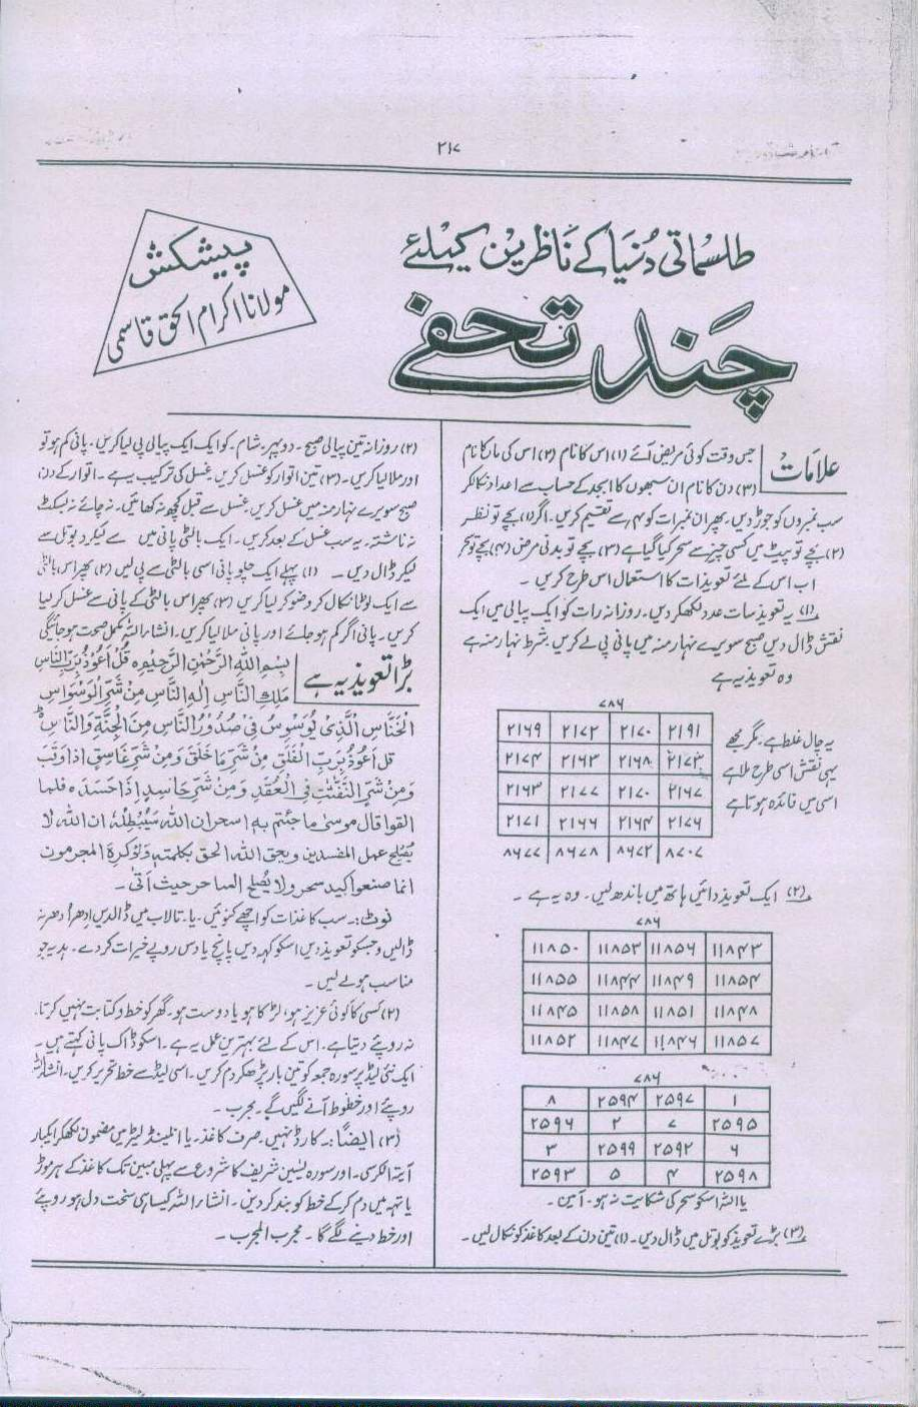 ۲۱۷
طلسماتی دُنیا کے ناظرین کیلئے
چند تحفے
پیشکش
مولانا اکرام الحق قاسمی
علامات
جس وقت کوئی مریض آئے (۱) اس کا نام (۲) اس کی ماں کا نام
(۳) دن کا نام ان سبھوں کا ابجد کے حساب سے اعداد نکالکر
سب نمبروں کو جوڑ دیں۔ پھر ان نمبرات کو ۴ سے تقسیم کریں۔ اگر (۱) بچے تو نظر
(۲) بچے تو پیٹ میں کسی چیز سے سحر کیا گیا ہے (۳) بچے تو بدنی مرض (۴) بچے تو سحر
اب اس کے لئے تعویذات کا استعمال اس طرح کریں۔
(۱) یہ تعویذ سات عدد لکھکر دیں۔ روزانہ رات کو ایک پیالی میں ایک
نقش ڈال دیں صبح سویرے نہار منہ میں پانی پی لے کریں۔ شرط نہار منہ ہے
وہ تعویذ یہ ہے
۷۸۶
۲۱۶۹ ۲۱۷۲ ۲۱۷۰ ۲۱۹۱
۲۱۷۴ ۲۱۶۲ ۲۱۶۸ ۲۱۷۳
۲۱۶۳ ۲۱۷۷ ۲۱۷۰ ۲۱۶۷
۲۱۷۱ ۲۱۶۶ ۲۱۶۴ ۲۱۷۶
۸۶۷۷ ۸۶۷۸ ۸۶۷۲ ۸۷۰۷
یہ چال غلط ہے۔ مگر مجھے
یہی نقش اسی طرح ملا ہے
اسی میں فائدہ ہوتا ہے
(۲) ایک تعویذ دائیں ہاتھ میں باندھ لیں۔ وہ یہ ہے۔
۷۸۶
۱۱۸۵۰ ۱۱۸۵۳ ۱۱۸۵۶ ۱۱۸۴۳
۱۱۸۵۵ ۱۱۸۴۴ ۱۱۸۴۹ ۱۱۸۵۴
۱۱۸۴۵ ۱۱۸۵۸ ۱۱۸۵۱ ۱۱۸۴۸
۱۱۸۵۲ ۱۱۸۴۷ ۱۱۸۴۶ ۱۱۸۵۷
۷۸۶
۸ ۲۵۹۴ ۲۵۹۷ ۱
۲۵۹۶ ۲ ۷ ۲۵۹۵
۳ ۲۵۹۹ ۲۵۹۲ ۶
۲۵۹۳ ۵ ۴ ۲۵۹۸
یا اللہ اسکو سحر کی شکایت نہ ہو۔ آمین۔
(۳) بڑے تعویذ کو بوتل میں ڈال دیں۔ (۱) تین دن کے بعد کاغذ کو نکال لیں۔
(۲) روزانہ تین پیالی صبح۔ دوپہر۔ شام۔ کو ایک ایک پیالی پی لیا کریں۔ پانی کم ہو تو
اور ملا لیا کریں۔ (۳) تین اتوار کو غسل کریں۔ غسل کی ترکیب یہ ہے۔ اتوار کے دن
صبح سویرے نہار منہ میں غسل کریں۔ غسل سے قبل کچھ نہ کھائیں۔ نہ چائے نہ بسکٹ
نہ ناشتہ۔ یہ سب غسل کے بعد کریں۔ ایک بالٹی پانی میں سے لیکر دبوتل سے
لیکر ڈال دیں۔ (۱) پہلے ایک چلو پانی اسی بالٹی سے پی لیں (۲) پھر اس بالٹی
سے ایک لوٹا نکال کر وضو کر لیا کریں (۳) پھر اس بالٹی کے پانی سے غسل کر لیا
کریں۔ پانی اگر کم ہو جائے اور پانی ملا لیا کریں۔ انشاء اللہ مکمل صحت ہو جائیگی
بڑا تعویذ یہ ہے
بِسمِ اللہِ الرَّحمٰنِ الرَّحِیمِ ہ قُل اَعُوذُ بِرَبِّ النَّاسِ
مَلِكِ النَّاسِ اِلٰهِ النَّاسِ مِن شَرِّ الوَسوَاسِ
الخَنَّاسِ الَّذِی یُوَسوِسُ فِی صُدُورِ النَّاسِ مِنَ الجِنَّةِ وَالنَّاسِ
قل اَعُوذُ بِرَبِّ الفَلَقِ مِن شَرِّ مَا خَلَقَ وَ مِن شَرِّ غَاسِقٍ اِذا وَقَبَ
وَمِن شَرِّ النَّفّٰثٰتِ فِی العُقَدِ وَ مِن شَرِّ حَاسِدٍ اِذَا حَسَدَ ہ فلما
القوا قال موسیٰ ما جئتم بہ اسحر ان اللہ سَیُبطِلُهٗ ان اللہ لا
یُصلِحُ عمل المفسدین و یحق اللہ الحق بکلمتہ وَلَو کَرِهَ المجرمون
انما صنعوا کید سحر ولا یُفلِحُ الساحر حیث اَتٰی۔
نوٹ:۔ سب کاغذات کو اچھے کنوئیں۔ یا۔ تالاب میں ڈالدیں اِدھر اُدھر نہ
ڈالیں و جسکو تعویذ دیں اسکو کہہ دیں پانچ یا دس روپے خیرات کر دے۔ ہدیہ جو
مناسب ہو لے لیں۔
(۲) کسی کا کوئی عزیز ہو، لڑکا ہو یا دوست ہو۔ گھر کو خط و کتابت نہیں کرتا،
نہ روپئے دیتا ہے۔ اس کے لئے بہترین عمل یہ ہے۔ اسکو ڈاک پانی کہتے ہیں۔
ایک نئی لیڈ پر سورہ جمعہ کو تین بار پڑھکر دم کریں۔ اسی لیڈ سے خط تحریر کریں۔ انشاء اللہ
روپئے اور خطوط آنے لگیں گے۔ مجرب۔
(۳) ایضاً:۔ کارڈ نہیں۔ صرف کاغذ۔ یا انلینڈ لیٹر میں مضمون لکھکر ایکبار
آیتہ الکرسی۔ اور سورہ یٰسین شریف کا شروع سے پہلی مبین تک کاغذ کے ہر موڑ
یا تہہ میں دم کر کے خط کو بند کر دیں۔ انشاء اللہ کیسا ہی سخت دل ہو روپئے
اور خط دینے لگے گا۔ مجرب المجرب۔